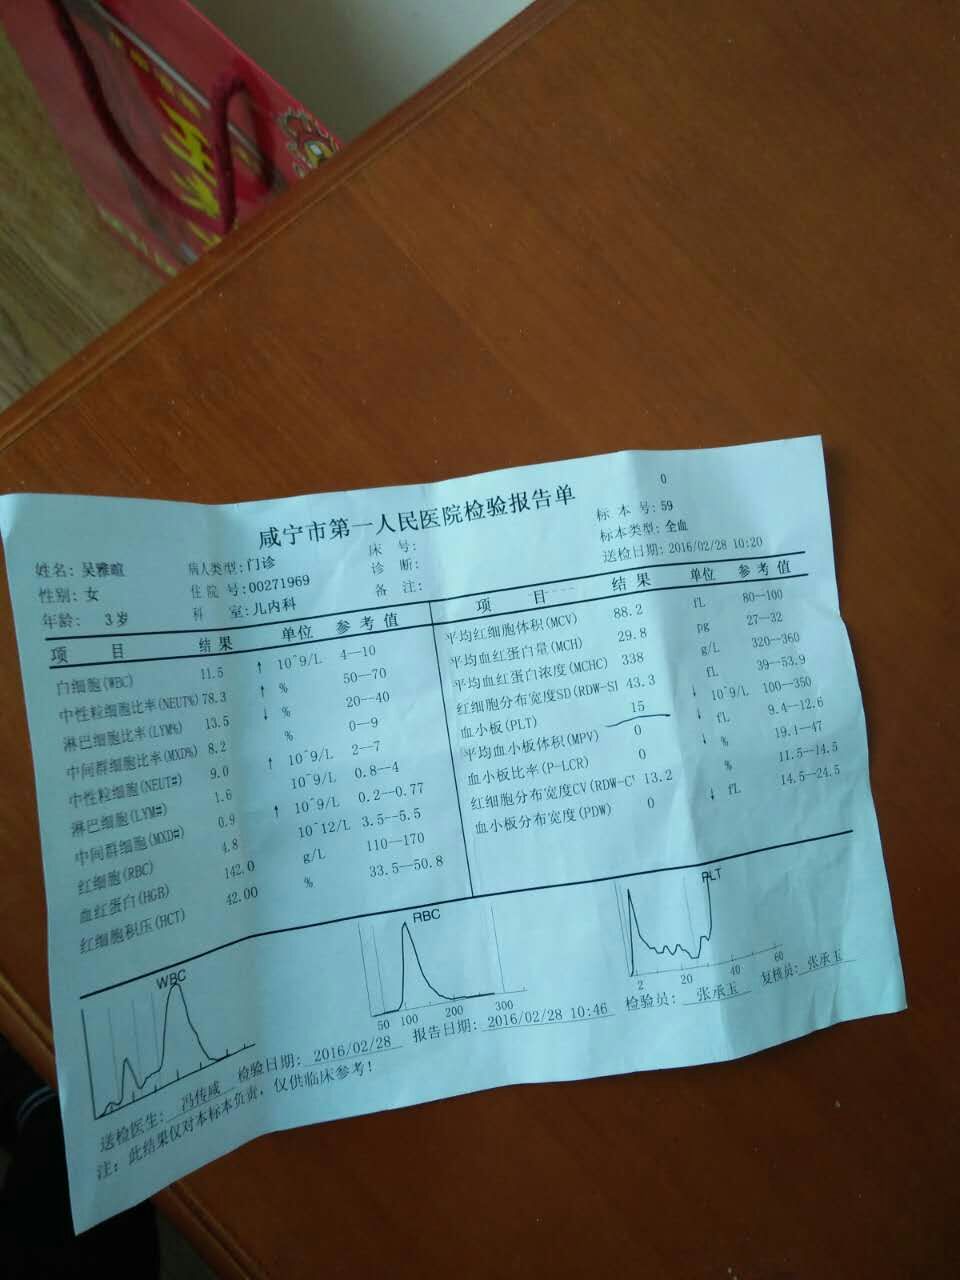 0
咸宁市第一人民医院检验报告单
姓名: 吴雅暄 病人类型: 门诊 床 号: 标 本 号: 59
性别: 女 住 院 号: 00271969 诊 断: 标本类型: 全血
年龄: 3 岁 科 室: 儿内科 备 注: 送检日期: 2016/02/28 10:20
项 目 结 果 单位 参 考 值
白细胞(WBC) 11.5 ↑ 10^9/L 4—10
中性粒细胞比率(NEUT%) 78.3 ↑ % 50—70
淋巴细胞比率(LYM%) 13.5 ↓ % 20—40
中间群细胞比率(MXD%) 8.2 % 0—9
中性粒细胞(NEUT#) 9.0 ↑ 10^9/L 2—7
淋巴细胞(LYM#) 1.6 10^9/L 0.8—4
中间群细胞(MXD#) 0.9 ↑ 10^9/L 0.2—0.77
红细胞(RBC) 4.8 10^12/L 3.5—5.5
血红蛋白(HGB) 142.0 g/L 110—170
红细胞积压(HCT) 42.00 % 33.5—50.8
项 目 结 果 单位 参 考 值
平均红细胞体积(MCV) 88.2 fL 80—100
平均血红蛋白量(MCH) 29.8 pg 27—32
平均血红蛋白浓度(MCHC) 338 g/L 320—360
红细胞分布宽度SD(RDW-S 43.3 fL 39—53.9
血小板(PLT) 15 ↓ 10^9/L 100—350
平均血小板体积(MPV) 0 ↓ fL 9.4—12.6
血小板比率(P-LCR) 0 ↓ % 19.1—47
红细胞分布宽度CV(RDW-C 13.2 % 11.5—14.5
血小板分布宽度(PDW) 0 ↓ fL 14.5—24.5
WBC
RBC
50 100 200 300
PLT
2 20 40 60
送检医生: 冯传咸 检验日期: 2016/02/28 报告日期: 2016/02/28 10:46 检验员: 张承玉 复核员: 张承玉
注: 此结果仅对本标本负责, 仅供临床参考!